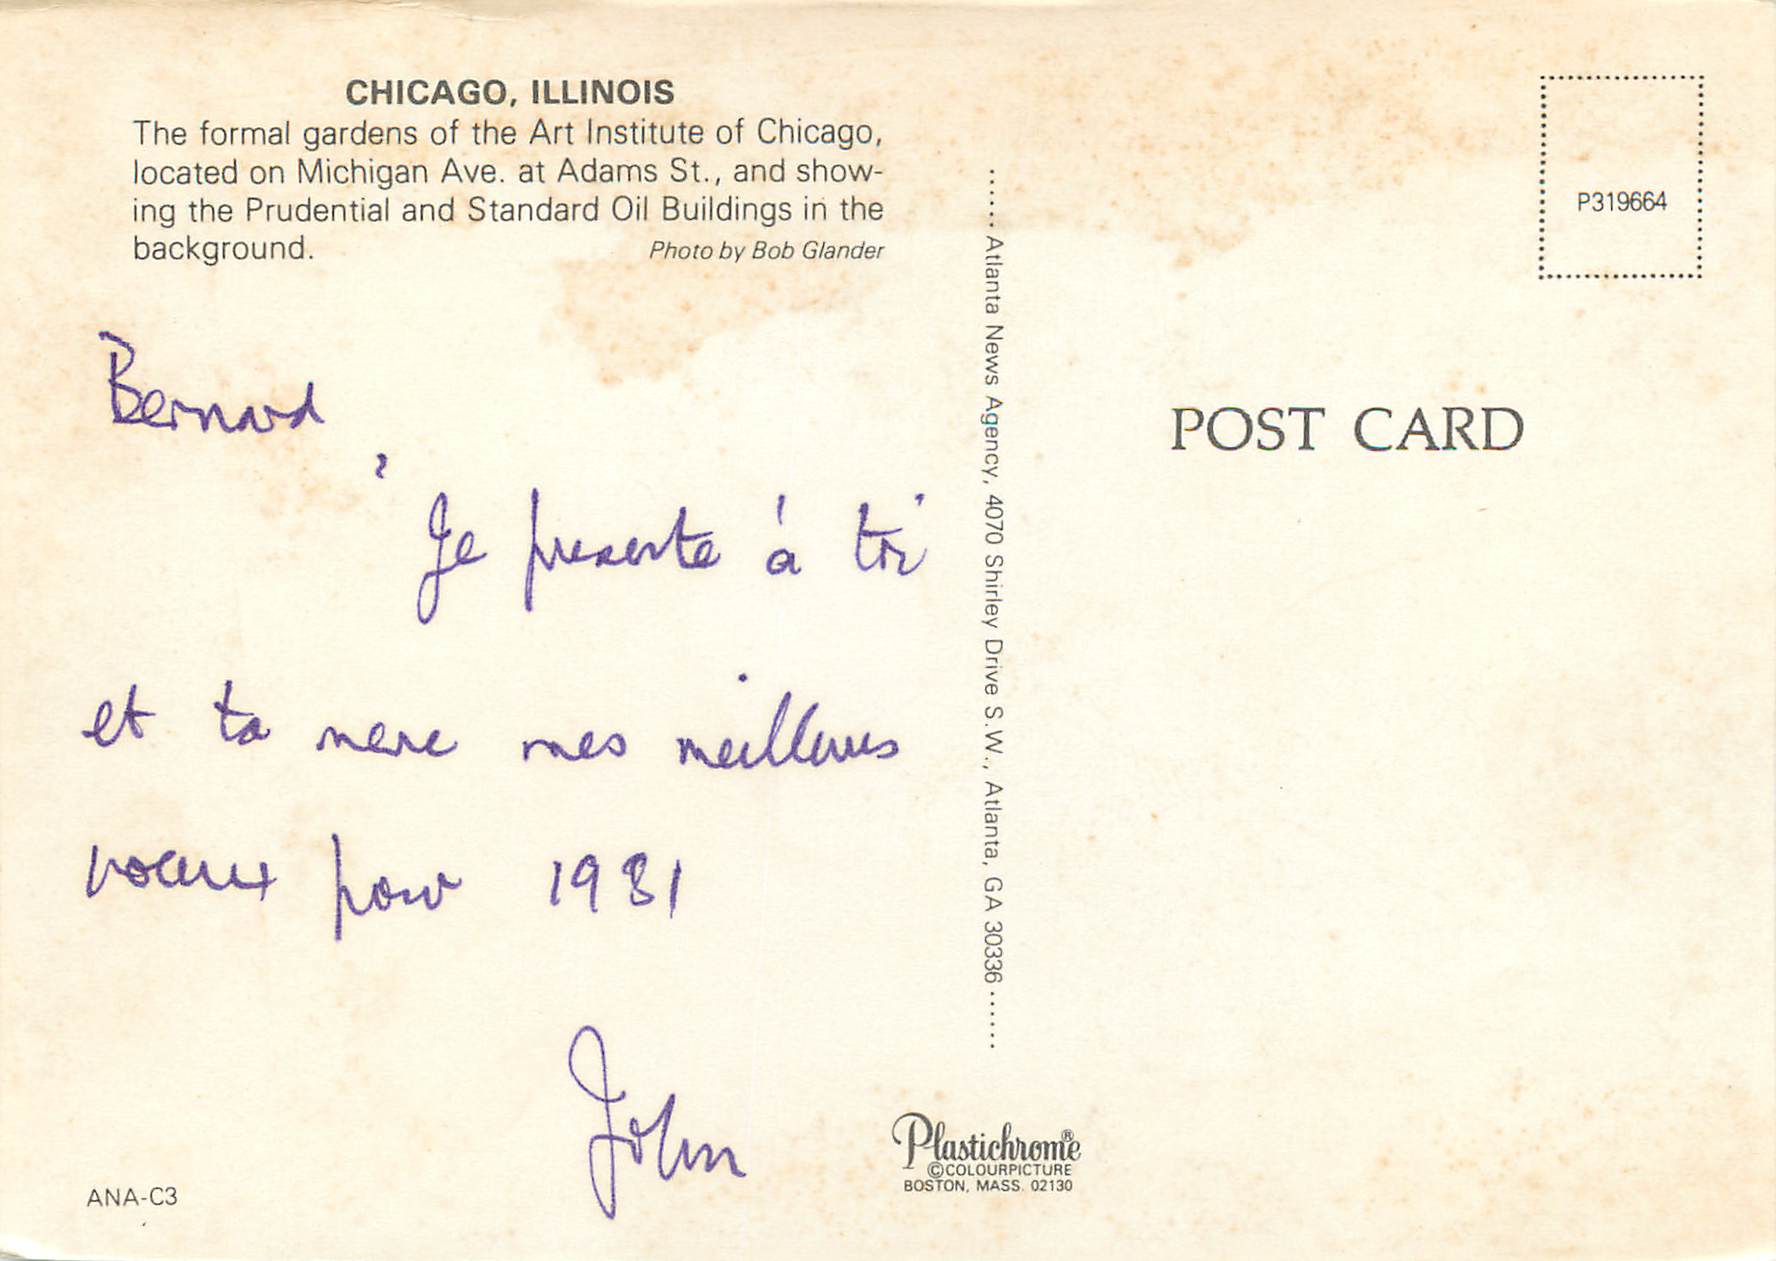 CHICAGO, ILLINOIS
The formal gardens of the Art Institute of Chicago,
located on Michigan Ave. at Adams St., and show-
ing the Prudential and Standard Oil Buildings in the
background.
Photo by Bob Glander
Bernard,
Je presente à toi
et ta mere mes meilleurs
voeux pour 1981
John
ANA-C3
Atlanta News Agency, 4070 Shirley Drive S.W., Atlanta, GA 30336
Plastichrome®
©COLOURPICTURE
BOSTON, MASS. 02130
P319664
POST CARD